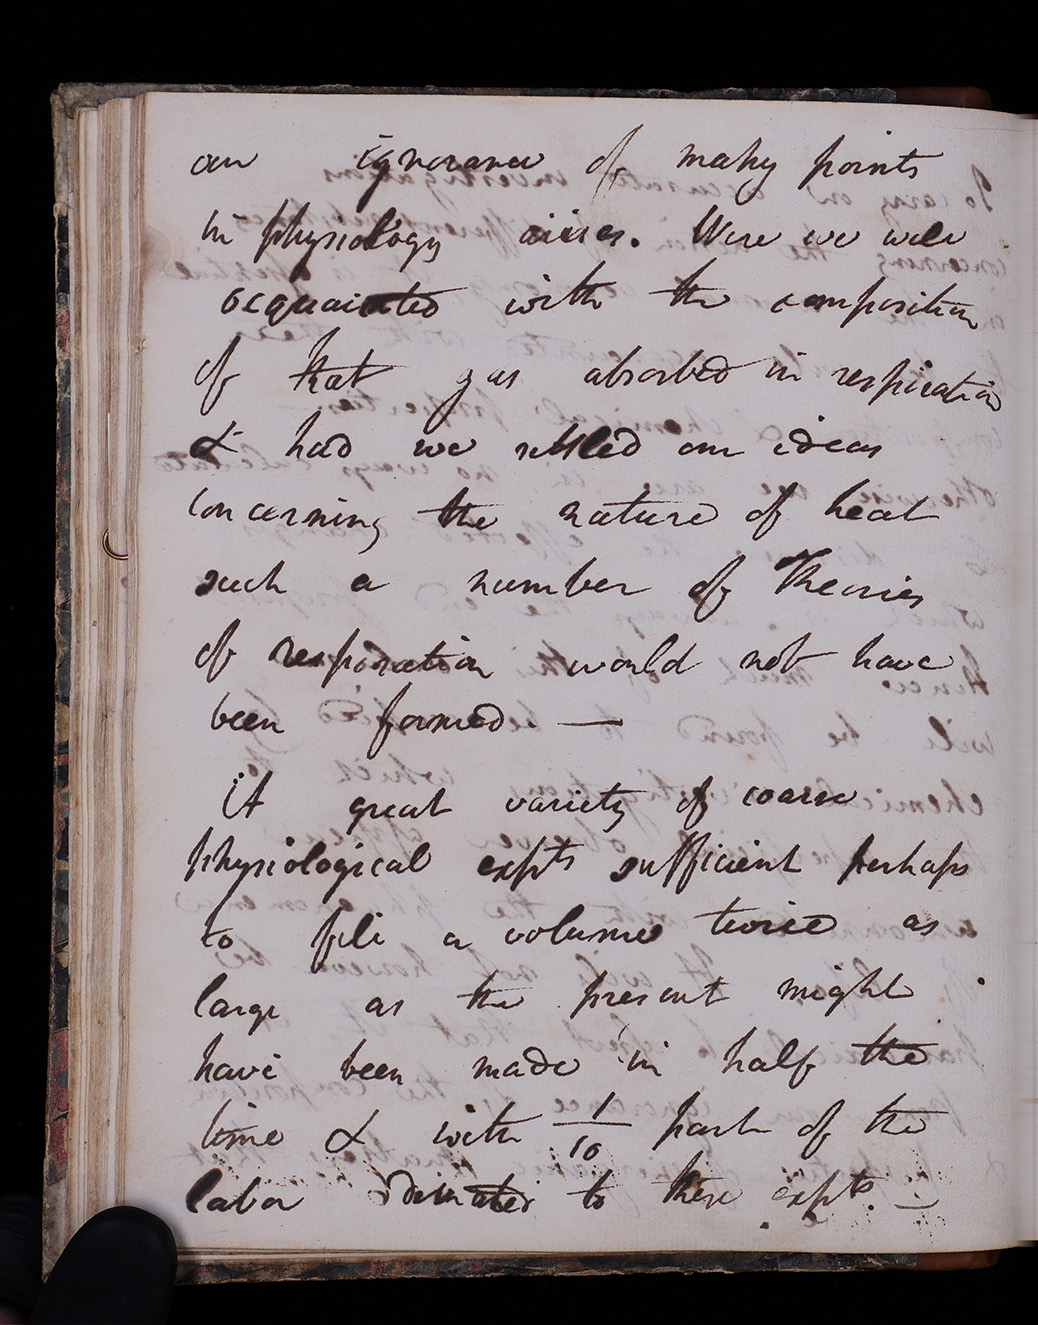 our ignorance of many points
in physiology arises. Were we well
acquainted with the composition
of that gas absorbed in respiration
& had we settled our ideas
concerning the nature of heat
such a number of Theories
of respiration would not have
been formed —
A great variety of coarse
physiological expts sufficient perhaps
to fill a volume twice as
large as the present might
have been made in half the
time & with 1/10 part of the
labor to these expts —